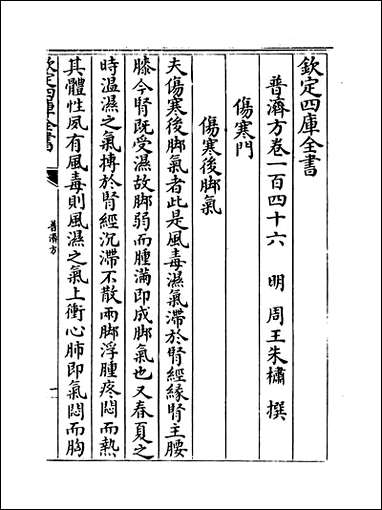 欽定四庫全書
普濟方卷一百四十六 明 周王朱橚 撰
傷寒門
傷寒後脚氣
夫傷寒後脚氣者此是風毒濕氣滯於腎經緣腎主腰
膝今腎既受濕故脚弱而腫滿即成脚氣也又春夏之
時温濕之氣搏於腎經沉滯不散兩脚浮腫疼悶而熱
其體性夙有風毒則風濕之氣上衝心肺即氣悶而胸
欽定四庫全書
普濟方
一